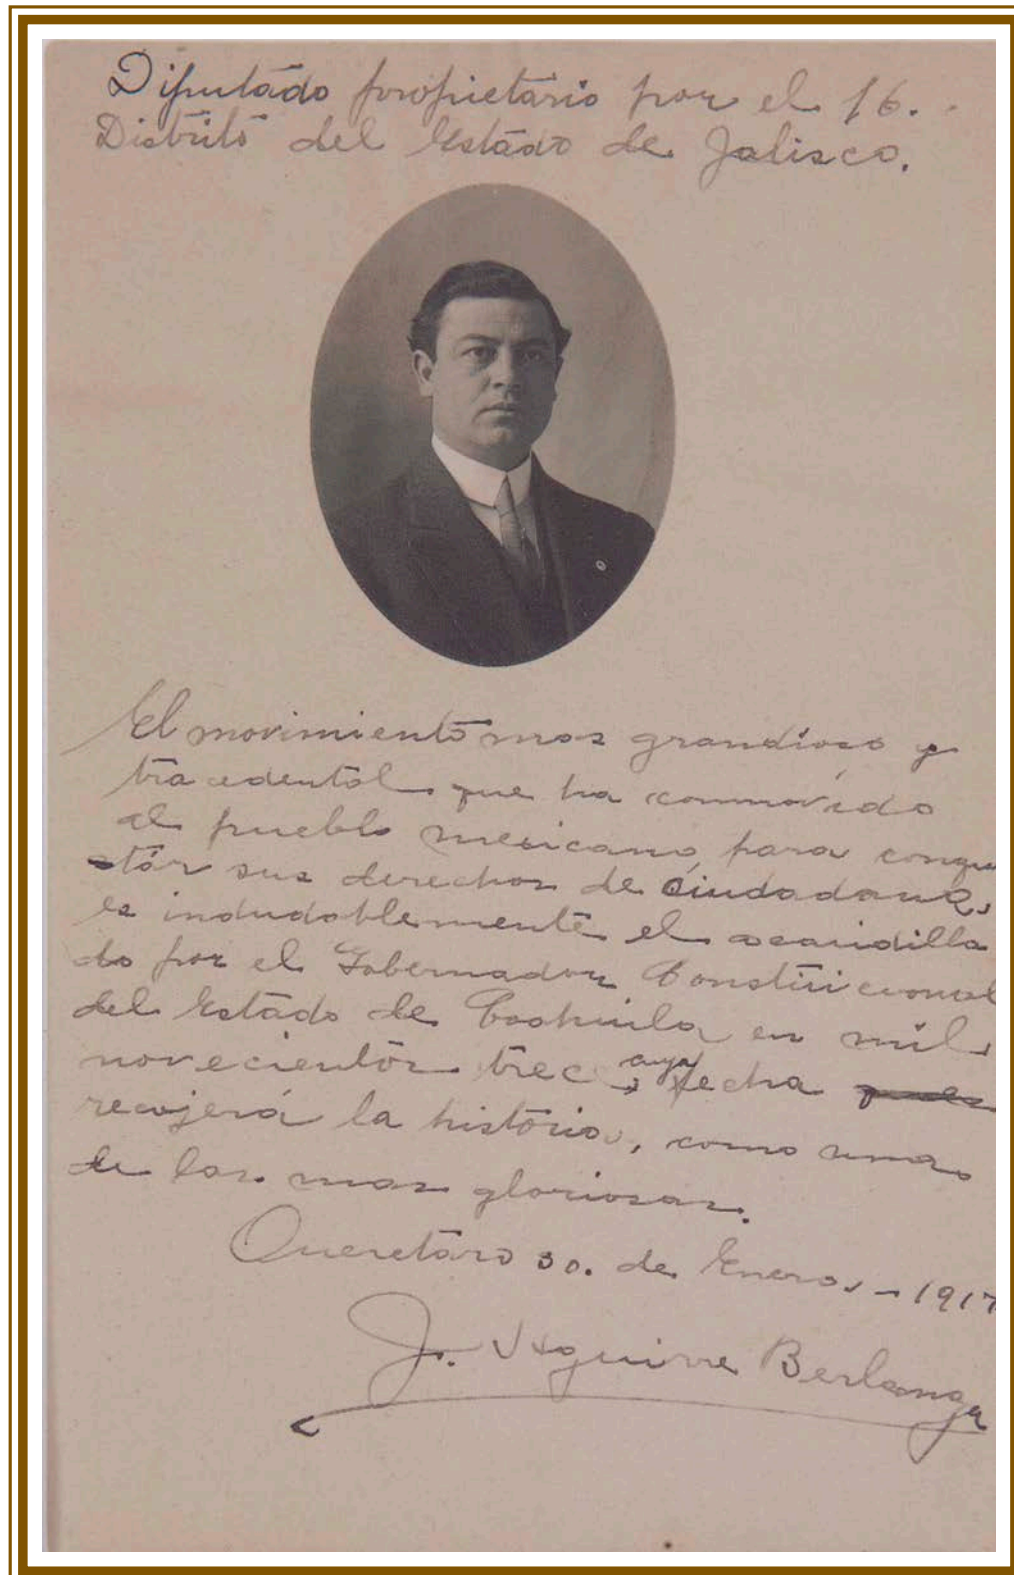 Diputado propietario por el 16.
Distrito del Estado de Jalisco.
El movimiento mas grandioso y
tracedental que ha conmovido
al pueblo mexicano, para conqui
star sus derechos de Ciudadano,
es indudablemente el acaudilla
do por el Gobernador Constiucional
del Estado de Coahuila en mil
novecientos trece, cuya fecha
recojerá la historia, como una
de las mas gloriosas.
Queretaro 30. de Enero, - 1917
J. Aguirre Berlanga